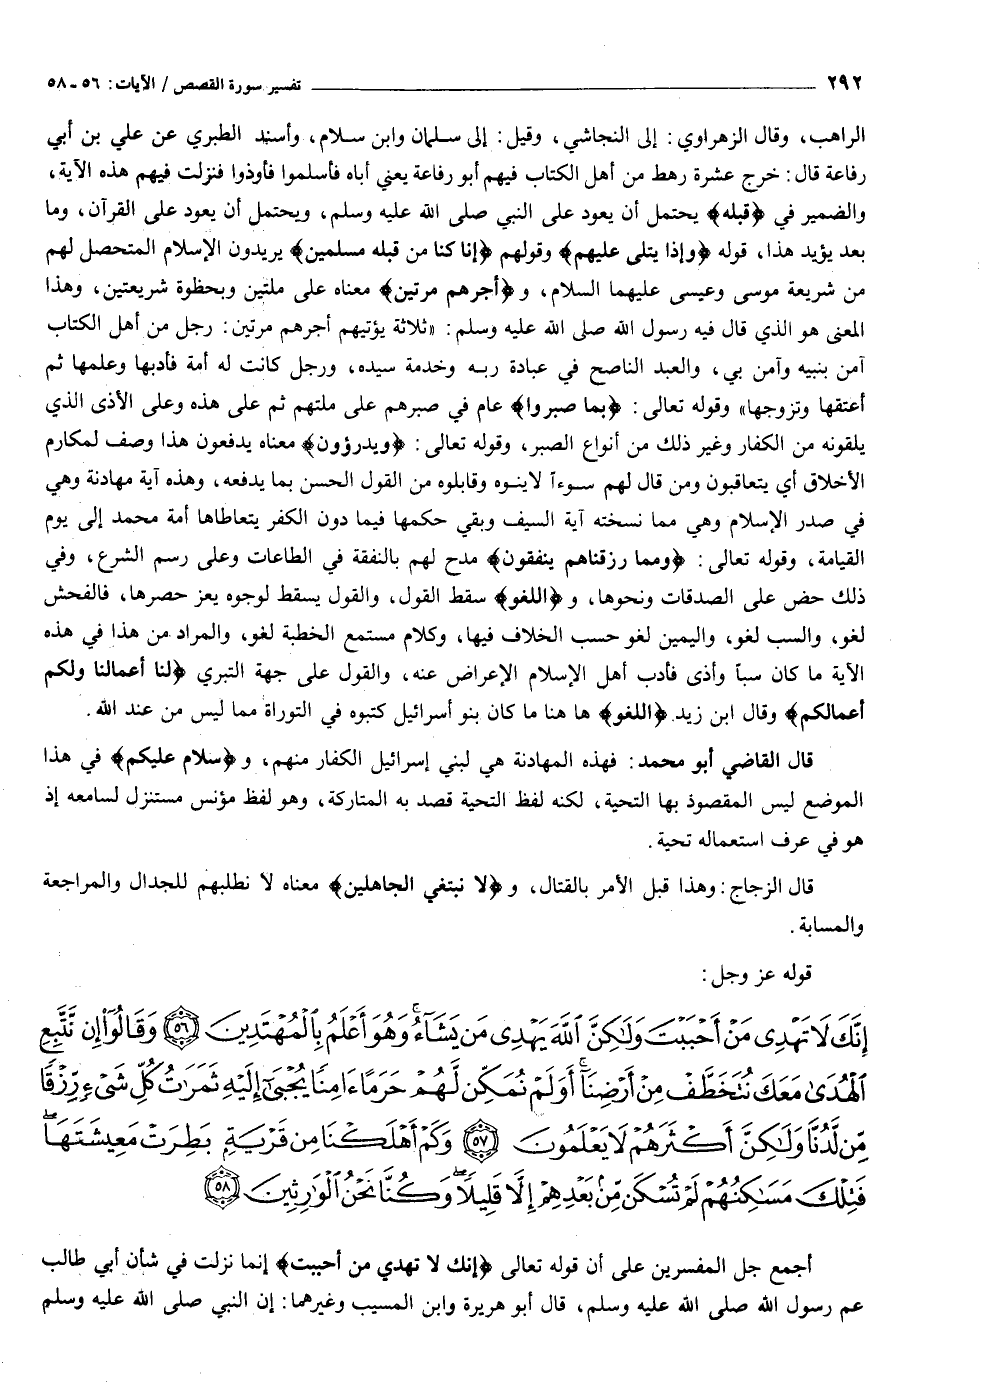 ٢٩٢ تفسير سورة القصص / الآيات: ٥٦ - ٥٨
الراهب، وقال الزهراوي: إلى النجاشي، وقيل: إلى سلمان وابن سلام، وأسند الطبري عن علي بن أبي
رفاعة قال: خرج عشرة رهط من أهل الكتاب فيهم أبو رفاعة يعني أباه فأسلموا فأوذوا فنزلت فيهم هذه الآية،
والضمير في ﴿قبله﴾ يحتمل أن يعود على النبي صلى الله عليه وسلم، ويحتمل أن يعود على القرآن، وما
بعد يؤيد هذا، قوله ﴿وإذا يتلى عليهم﴾ وقولهم ﴿إنا كنا من قبله مسلمين﴾ يريدون الإسلام المتحصل لهم
من شريعة موسى وعيسى عليهما السلام، و﴿أجرهم مرتين﴾ معناه على ملتين وبحظوة شريعتين، وهذا
المعنى هو الذي قال فيه رسول الله صلى الله عليه وسلم: «ثلاثة يؤتيهم أجرهم مرتين: رجل من أهل الكتاب
آمن بنبيه وآمن بي، والعبد الناصح في عبادة ربه وخدمة سيده، ورجل كانت له أمة فأدبها وعلمها ثم
أعتقها وتزوجها» وقوله تعالى: ﴿بما صبروا﴾ عام في صبرهم على ملتهم ثم على هذه وعلى الأذى الذي
يلقونه من الكفار وغير ذلك من أنواع الصبر، وقوله تعالى: ﴿ويدرؤون﴾ معناه يدفعون هذا وصف لمكارم
الأخلاق أي يتعاقبون ومن قال لهم سوءاً لاينوه وقابلوه من القول الحسن بما يدفعه، وهذه آية مهادنة وهي
في صدر الإسلام وهي مما نسخته آية السيف وبقي حكمها فيما دون الكفر يتعاطاها أمة محمد إلى يوم
القيامة، وقوله تعالى: ﴿ومما رزقناهم ينفقون﴾ مدح لهم بالنفقة في الطاعات وعلى رسم الشرع، وفي
ذلك حض على الصدقات ونحوها، و﴿اللغو﴾ سقط القول، والقول يسقط لوجوه يعز حصرها، فالفحش
لغو، والسب لغو، واليمين لغو حسب الخلاف فيها، وكلام مستمع الخطبة لغو، والمراد من هذا في هذه
الآية ما كان سباً وأذى فأدب أهل الإسلام الإعراض عنه، والقول على جهة التبري ﴿لنا أعمالنا ولكم
أعمالكم﴾ وقال ابن زيد ﴿اللغو﴾ ها هنا ما كان بنو أسرائيل كتبوه في التوراة مما ليس من عند الله.
قال القاضي أبو محمد: فهذه المهادنة هي لبني إسرائيل الكفار منهم، و﴿سلام عليكم﴾ في هذا
الموضع ليس المقصوذ بها التحية، لكنه لفظ التحية قصد به المتاركة، وهو لفظ مؤنس مستنزل لسامعه إذ
هو في عرف استعماله تحية.
قال الزجاج: وهذا قبل الأمر بالقتال، و﴿لا نبتغي الجاهلين﴾ معناه لا نطلبهم للجدال والمراجعة
والمسابة.
قوله عز وجل:
إِنَّكَ لَا تَهْدِى مَنْ أَحْبَبْتَ وَلَٰكِنَّ ٱللَّهَ يَهْدِى مَن يَشَآءُ ۚ وَهُوَ أَعْلَمُ بِٱلْمُهْتَدِينَ ٥٦ وَقَالُوٓا۟ إِن نَّتَّبِعِ
ٱلْهُدَىٰ مَعَكَ نُتَخَطَّفْ مِنْ أَرْضِنَآ ۚ أَوَلَمْ نُمَكِّن لَّهُمْ حَرَمًا ءَامِنًا يُجْبَىٰٓ إِلَيْهِ ثَمَرَٰتُ كُلِّ شَىْءٍ رِّزْقًا
مِّن لَّدُنَّا وَلَٰكِنَّ أَكْثَرَهُمْ لَا يَعْلَمُونَ ٥٧ وَكَمْ أَهْلَكْنَا مِن قَرْيَةٍۭ بَطِرَتْ مَعِيشَتَهَا ۖ
فَتِلْكَ مَسَٰكِنُهُمْ لَمْ تُسْكَن مِّنۢ بَعْدِهِمْ إِلَّا قَلِيلًا ۖ وَكُنَّا نَحْنُ ٱلْوَٰرِثِينَ ٥٨
أجمع جل المفسرين على أن قوله تعالى ﴿إنك لا تهدي من أحببت﴾ إنما نزلت في شأن أبي طالب
عم رسول الله صلى الله عليه وسلم، قال أبو هريرة وابن المسيب وغيرهما: إن النبي صلى الله عليه وسلم